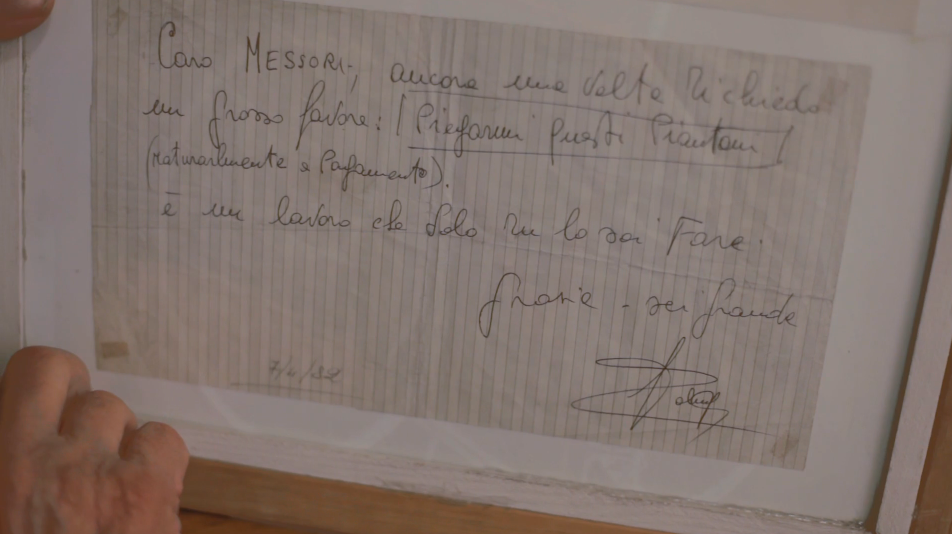 Caro MESSORI, ancora una volta Richiedo
un grosso favore: Piegarmi questi Piantoni
(Naturalmente a Pagamento).
è un lavoro che Solo Tu lo sai Fare.
grazie - sei grande
7/4/92